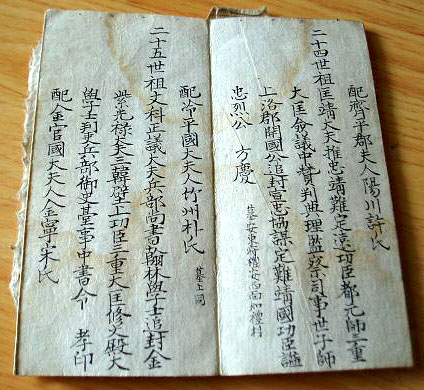 配齊平郡夫人陽川許氏
二十四世祖匡靖大夫推忠靖難定遠功臣都元帥三重
大匡僉議中贊判典理監察司事世子師
上洛郡開國公追封宣忠協謀定難靖國功臣謚
忠烈公 方慶
墓安東
配冷平國大夫人竹州朴氏
墓上同
二十五世祖文科正議大夫兵部尚書翰林學士追封金
紫光祿大夫三韓壁上功臣三重大匡修文殿大
學士判吏兵部御史臺事中書令 孝印
配金官國大夫人金寧宋氏